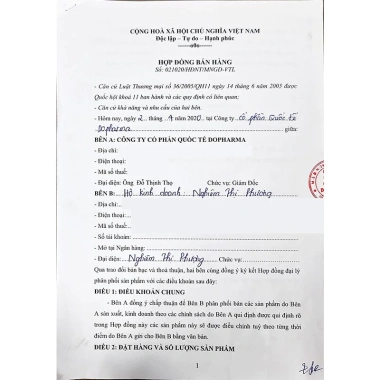 CỘNG HOÀ XÃ HỘI CHỦ NGHĨA VIỆT NAM
Độc lập – Tự do – Hạnh phúc
-----o0o-----
HỢP ĐỒNG BÁN HÀNG
Số: 021020/HĐNT/MNGD-VTL
- Căn cứ Luật Thương mại số 36/2005/QH11 ngày 14 tháng 6 năm 2005 được
Quốc hội khoá 11 ban hành và các quy định có liên quan;
- Căn cứ khả năng và nhu cầu của hai bên.
- Hôm nay, ngày 2 tháng 9 năm 2020, tại Công ty cổ phần Quốc tế
Dopharma giữa:
BÊN A: CÔNG TY CỔ PHẦN QUỐC TẾ DOPHARMA
- Địa chỉ:
- Điện thoại:
- Mã số thuế:
- Đại diện: Ông Đỗ Thịnh Thọ Chức vụ: Giám Đốc
BÊN B: Hộ kinh doanh: Nghiêm Thị Phương
- Địa chỉ:..
- Điện thoại:..
- Mã số thuế:..
- Số tài khoản:
- Mở tại Ngân hàng:
- Đại diện: Nghiêm Thị Phượng Chức vụ:
Qua trao đổi bàn bạc và thoả thuận, hai bên cùng đồng ý ký kết Hợp đồng đại lý
phân phối sản phẩm với các điều khoản sau đây:
ĐIỀU 1: ĐIỀU KHOẢN CHUNG
- Bên A đồng ý chấp thuận để Bên B phân phối bán các sản phẩm do Bên
A sản xuất, kinh doanh theo các chính sách do Bên A qui định được qui định rõ
trong Hợp đồng này các sản phẩm này sẽ được điều chỉnh tuỳ theo từng thời
điểm do Bên A gửi cho Bên B bằng văn bản.
ĐIỀU 2: ĐẶT HÀNG VÀ SỐ LƯỢNG SẢN PHẨM
1